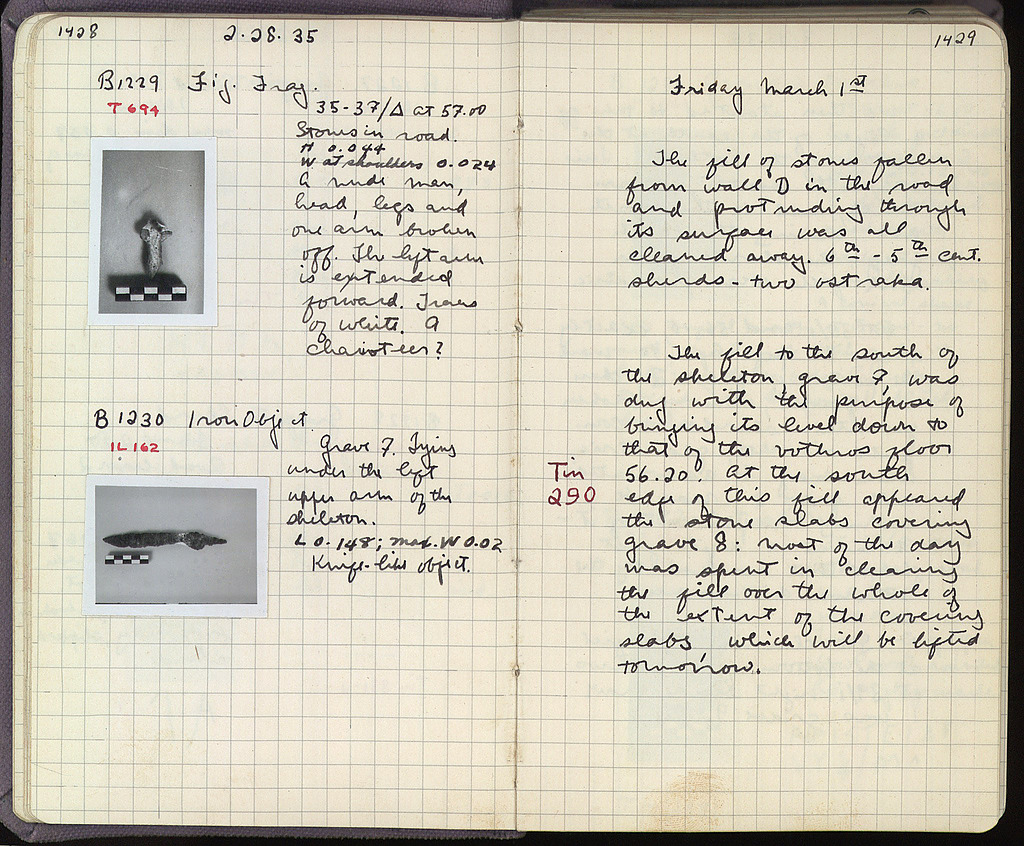 1428
2.28.35
B1229 Fig. Frag.
T 694
35-37/Δ at 57.00
Stones in road.
H 0.044
W at shoulders 0.024
A nude man,
head, legs and
one arm broken
off. The left arm
is extended
forward. Traces
of white. A
charioteer?
B 1230 Iron Object
IL 162
Grave 7. Lying
under the left
upper arm of the
skeleton.
L 0.148; max. W 0.02
Knife-like object.
1429
Friday March 1st
The fill of stones fallen
from wall D in the road
and protruding through
its surface was all
cleaned away. 6th - 5th cent.
sherds - two ostraka.
The fill to the south of
the skeleton, grave 7, was
dug with the purpose of
bringing its level down to
that of the bothros floor
Tin
56.20. At the south
290
edge of this fill appeared
the stone slabs covering
grave 8: most of the day
was spent in clearing
the fill over the whole of
the extent of the covering
slabs, which will be lifted
tomorrow.